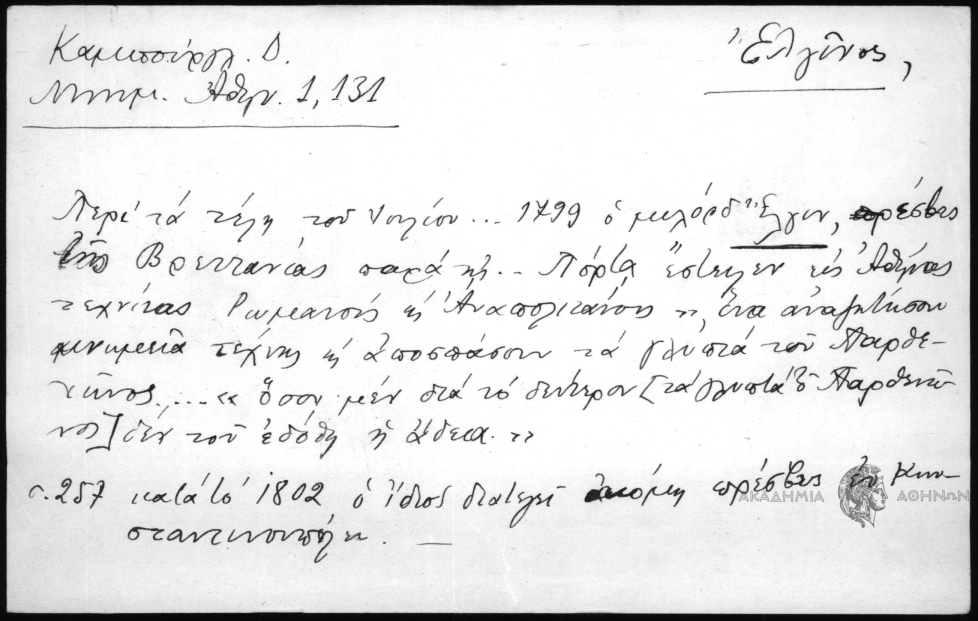 Καμπούργλ. Δ.
Μνημ. Ἀθην. 1, 131
Ἐλγῖνος,
Περί τά τέλη τοῦ Ἰουλίου... 1799 ὁ μυλόρδ Ἔλγιν, πρέσβυς
τῆς Βρεττανίας παρά τῇ.. Πόρτᾳ ἔστειλεν εἰς Ἀθήνας
τεχνίτας Ρωμαίους κ Ἀναπολιτάνους ", ἵνα ἀναζητήσουν
μνημεῖα τέχνης κ ἀποσπάσουν τά γλυπτά τοῦ Παρθε-
νῶνος.... « Ὅσον μέν διά τό δεύτερον [τά γλυπτά τ Παρθενῶ-
νος] δέν τοῦ ἐδόθη ἡ ἄδεια. "
σ. 257 κατά τό 1802 ὁ ἴδιος διατελεῖ ἀκόμη πρέσβυς ἐν Κων-
σταντινουπόλει. —
ΑΚΑΔΗΜΙΑ ΑΘΗΝΩΝ